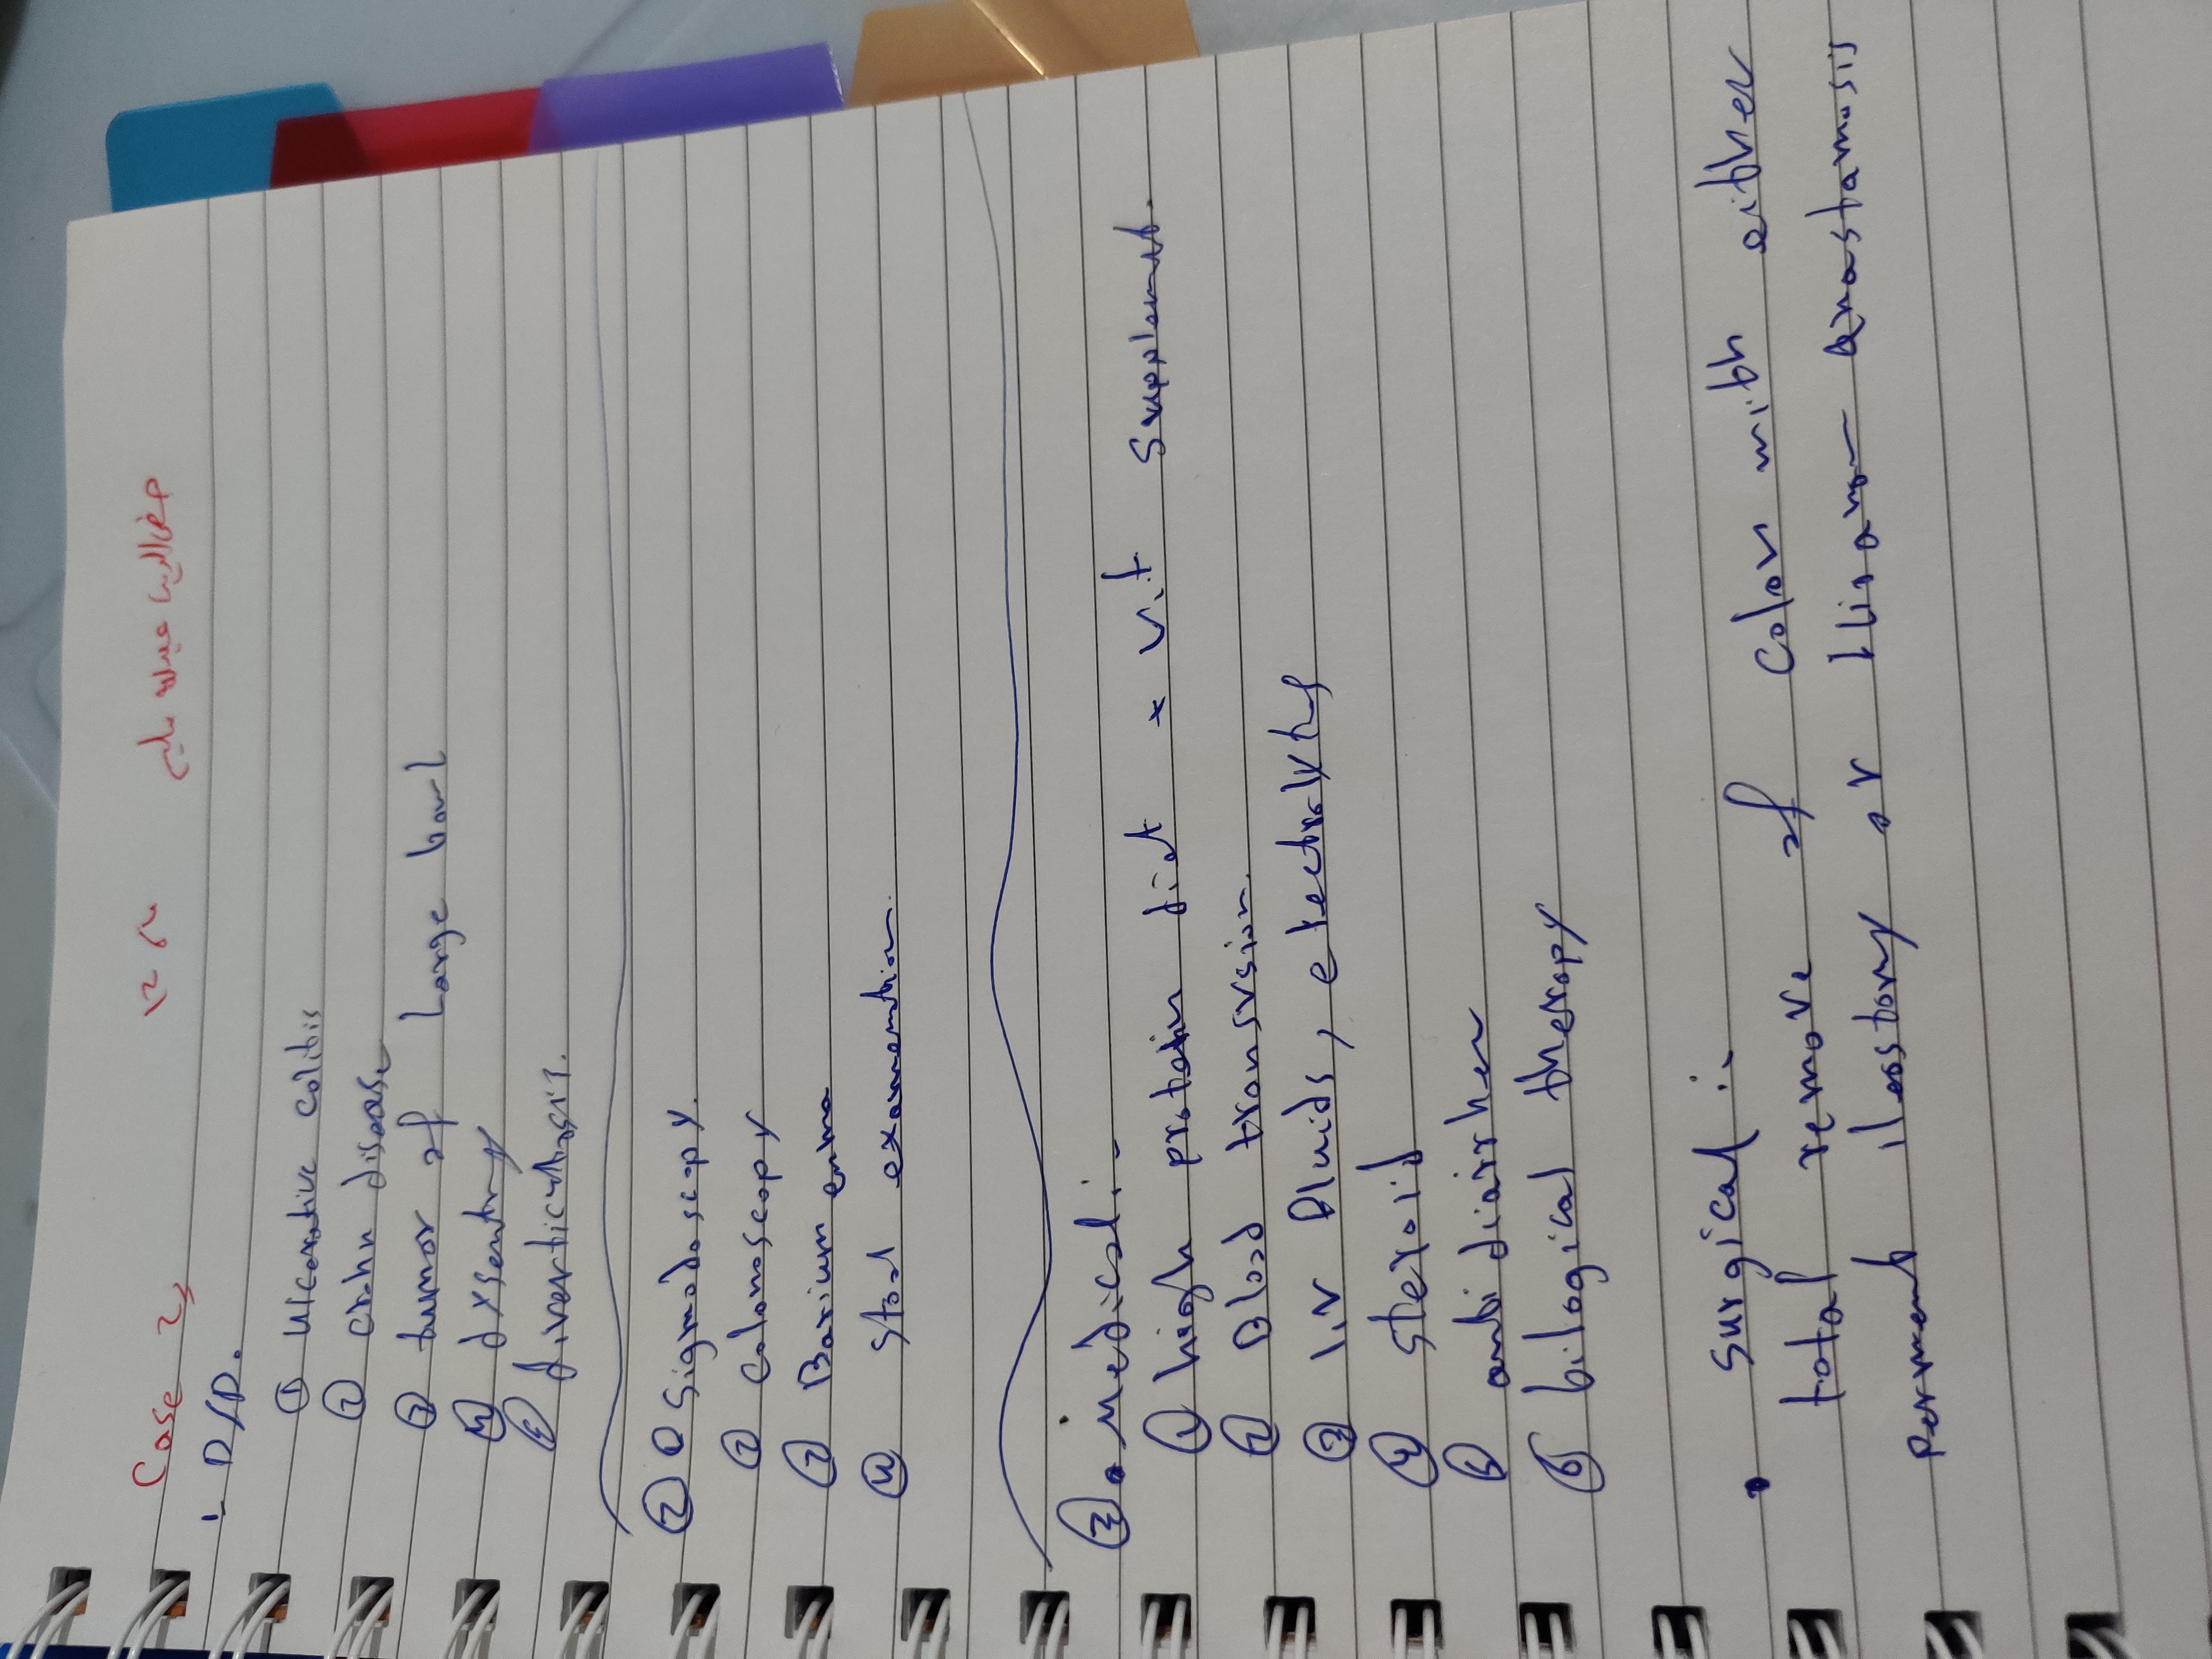 Case 2
1- D/D.
① Ulcerative colitis
② crohn disease
③ tumor of large bowl
④ dysentry
⑤ diverticulosis.
② ① Sigmodoscopy.
② colonoscopy
③ Barium enma
④ stool examention.
③ • Medical:-
① high protein diet × vit supplemnt.
② Blood transvsion.
③ Iv Fluids, electrolyths
④ steroid
⑤ antidiarrher
⑥ bilogical therapy
• Surgical :-
total remove of colon with either
Perment ileostomy or anastamosis